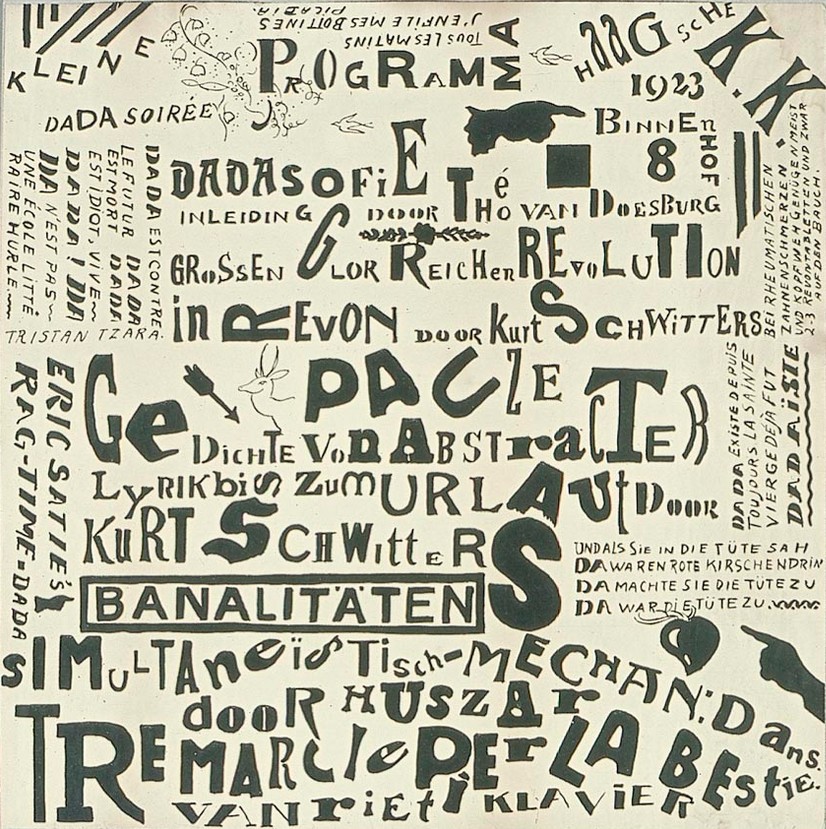 J'ENFILE MES BOTTINES
PICABIA
TOUS LES MATINS
KLEINE
DADA SOIRÉE
PROGRAMMA
HAAGSCHE K.K.
1923
BINNENHOF 8
DADASOFIE Thé
INLEIDING DOOR THEO VAN DOESBURG
GROSSEN GLORREICHEN REVOLUTION
in REVON DOOR Kurt SCHWITTERS
DADA EST CONTRE
LE FUTUR DADA
EST MORT DADA
EST IDIOT, VIVE
DADA! DA
DA N'EST PAS
UNE ÉCOLE LITTÉ
RAIRE HURLE
TRISTAN TZARA.
BEI RHEUMATISCHEN
ZAHNENSCHMERZEN
UND KOPFWEH GENÜGEN MEIST
2-3 REVONTABLETTEN UND ZWAR
AUF DEN BAUCH.
ERIC SATIE'S
RAG-TIME-DADA
Ge PAUZE
DICHTE VON ABSTracTER
LYRIK bis ZUM URLAUT DOOR
KURT SCHWittERS
DADA EXISTE DEPUIS
TOUJOURS LA SAINTE
VIERGE DÉJÀ FUT
DADAÏSTE
BANALITÄTEN
UND ALS SIE IN DIE TÜTE SAH
DA WAREN ROTE KIRSCHEN DRIN
DA MACHTE SIE DIE TÜTE ZU
DA WAR DIE TÜTE ZU.
SIMULTANEïSTISCH-MECHAN: Dans.
dooR HUSZAr
TRE MARCIE PEr LA BEStie.
VAN rieti KLAVIER